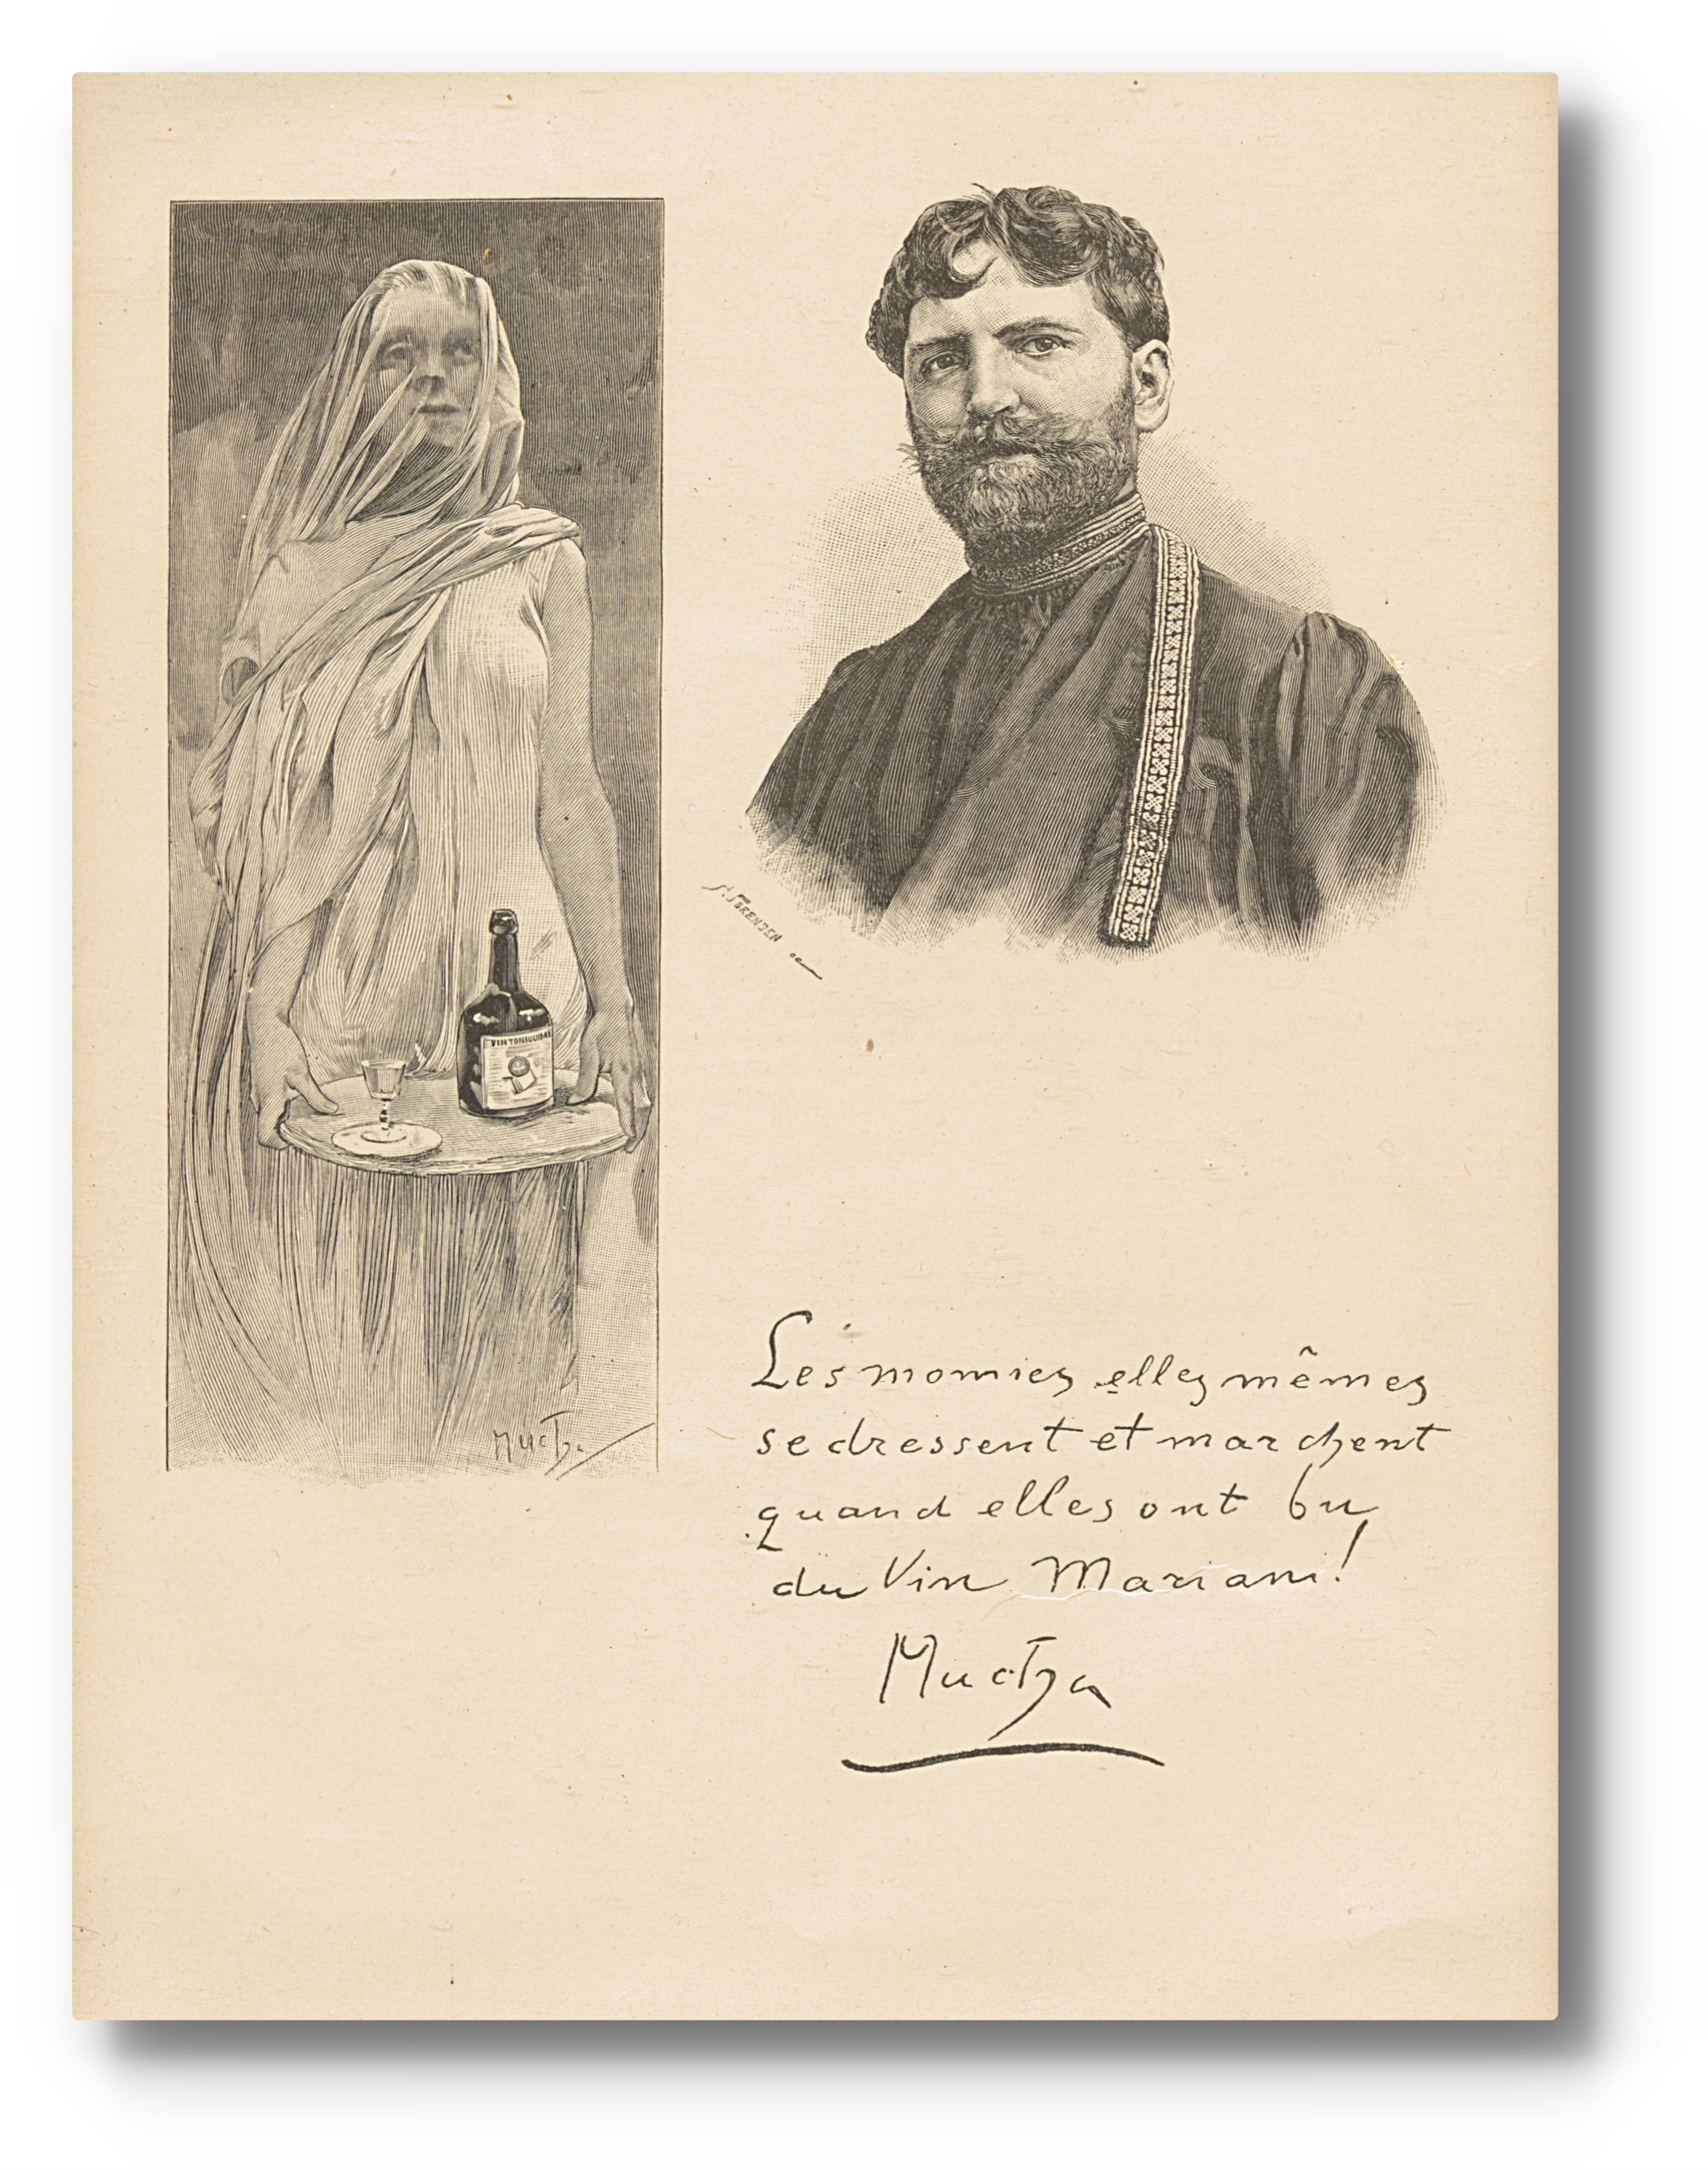 VIN TONIQUE
Mucha
A. SÖRENSEN sc
Les momies elles mêmes
se dressent et marchent
quand elles ont bu
du Vin Mariani!
Mucha